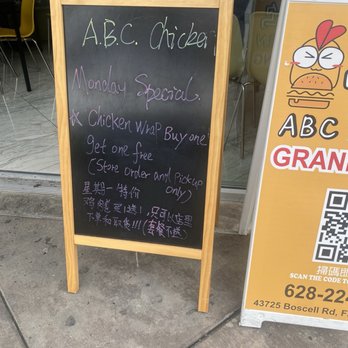 A.B.C. Chicken
Monday Special.
☆ Chicken wrap Buy one
get one free
(Store order and Pickup
only)
星期一特价
鸡卷买1送1,只可以店里
下单和取餐!!!(套餐不送)
ABC
GRAN
掃碼
SCAN THE CODE TO
628-224
43725 Boscell Rd, F